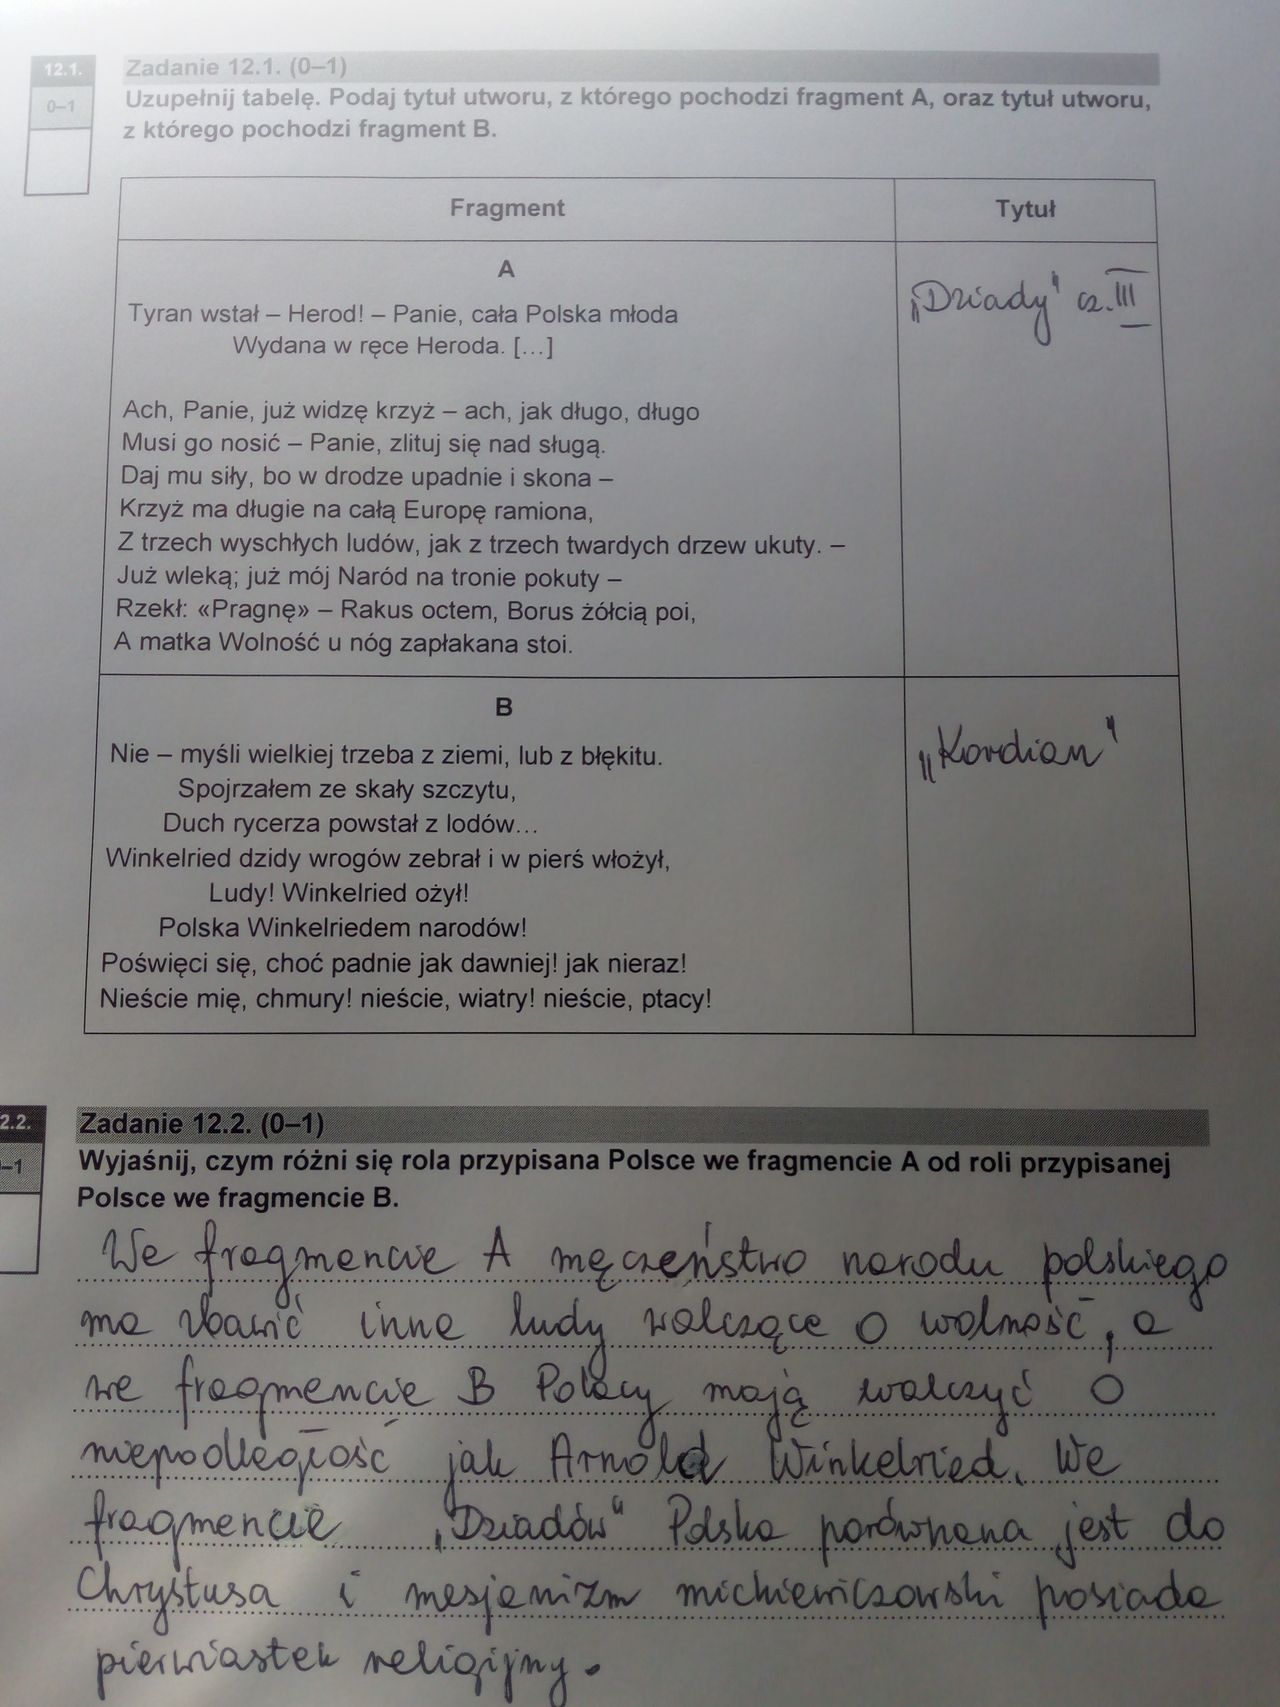 12.1.
0–1
Zadanie 12.1. (0–1)
Uzupełnij tabelę. Podaj tytuł utworu, z którego pochodzi fragment A, oraz tytuł utworu,
z którego pochodzi fragment B.
Fragment
Tytuł
A
Tyran wstał – Herod! – Panie, cała Polska młoda
Wydana w ręce Heroda. [...]
Ach, Panie, już widzę krzyż – ach, jak długo, długo
Musi go nosić – Panie, zlituj się nad sługą.
Daj mu siły, bo w drodze upadnie i skona –
Krzyż ma długie na całą Europę ramiona,
Z trzech wyschłych ludów, jak z trzech twardych drzew ukuty. –
Już wleką; już mój Naród na tronie pokuty –
Rzekł: «Pragnę» – Rakus octem, Borus żółcią poi,
A matka Wolność u nóg zapłakana stoi.
„Dziady" cz. III
B
Nie – myśli wielkiej trzeba z ziemi, lub z błękitu.
Spojrzałem ze skały szczytu,
Duch rycerza powstał z lodów...
Winkelried dzidy wrogów zebrał i w pierś włożył,
Ludy! Winkelried ożył!
Polska Winkelriedem narodów!
Poświęci się, choć padnie jak dawniej! jak nieraz!
Nieście mię, chmury! nieście, wiatry! nieście, ptacy!
„Kordian"
2.2.
–1
Zadanie 12.2. (0–1)
Wyjaśnij, czym różni się rola przypisana Polsce we fragmencie A od roli przypisanej
Polsce we fragmencie B.
We fragmencie A męczeństwo narodu polskiego
ma zbawić inne ludy walczące o wolność, a
we fragmencie B Polacy mają walczyć o
niepodległość jak Arnold Winkelried. We
fragmencie „Dziadów" Polska porównana jest do
Chrystusa i mesjanizm mickiewiczowski posiada
pierwiastek religijny.